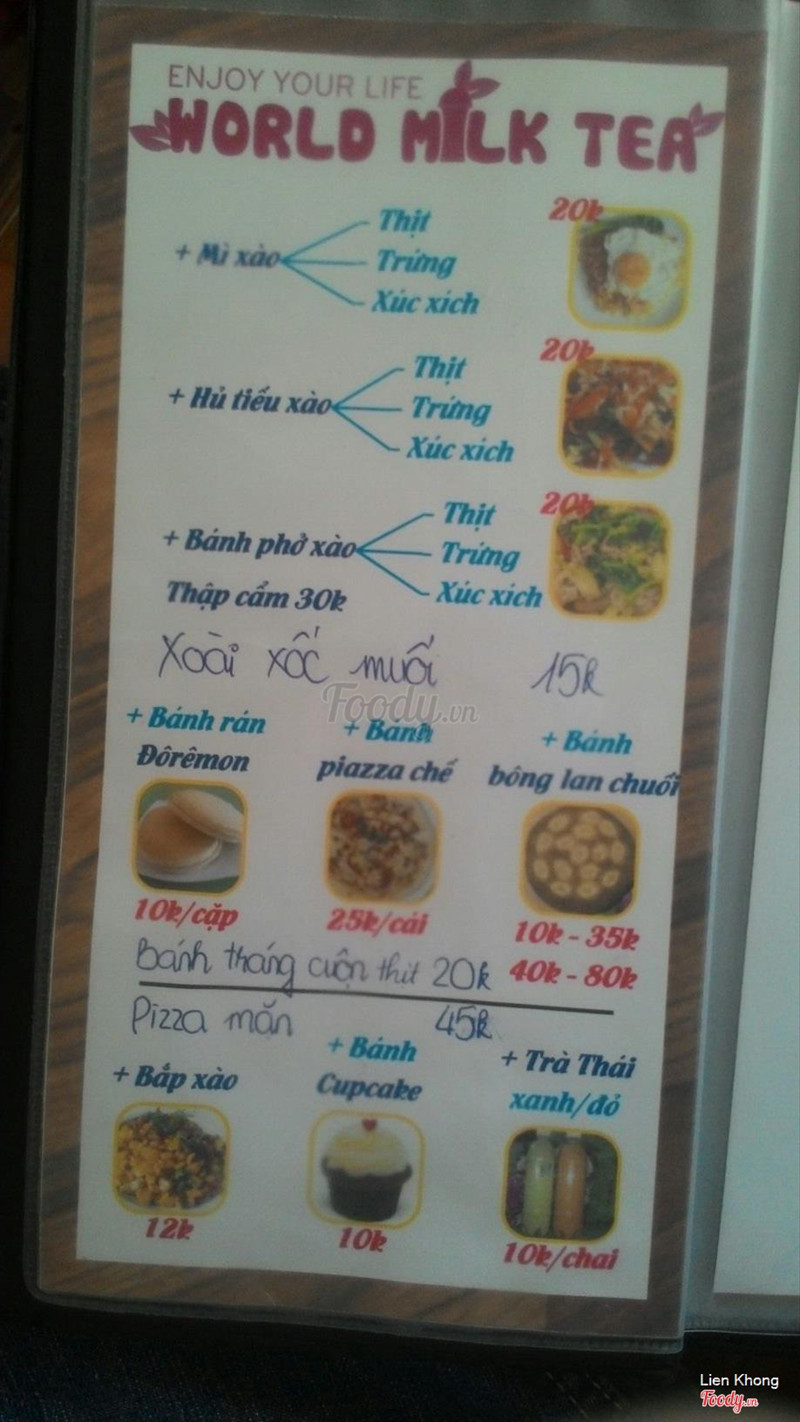 ENJOY YOUR LIFE
WORLD MILK TEA
20k
Thịt
+ Mì xào
Trứng
Xúc xích
20k
Thịt
+ Hủ tiếu xào
Trứng
Xúc xích
20k
Thịt
+ Bánh phở xào
Trứng
Xúc xích
Thập cẩm 30k
Xoài xốc muối 15k
Foody.vn
+ Bánh rán
Đôrêmon
10k/cặp
+ Bánh
piazza chế
25k/cái
+ Bánh
bông lan chuối
10k - 35k
40k - 80k
Bánh tháng cuộn thịt 20k
Pizza mặn 45k
+ Bắp xào
12k
+ Bánh
Cupcake
10k
+ Trà Thái
xanh/đỏ
10k/chai
Lien Khong
Foody.vn